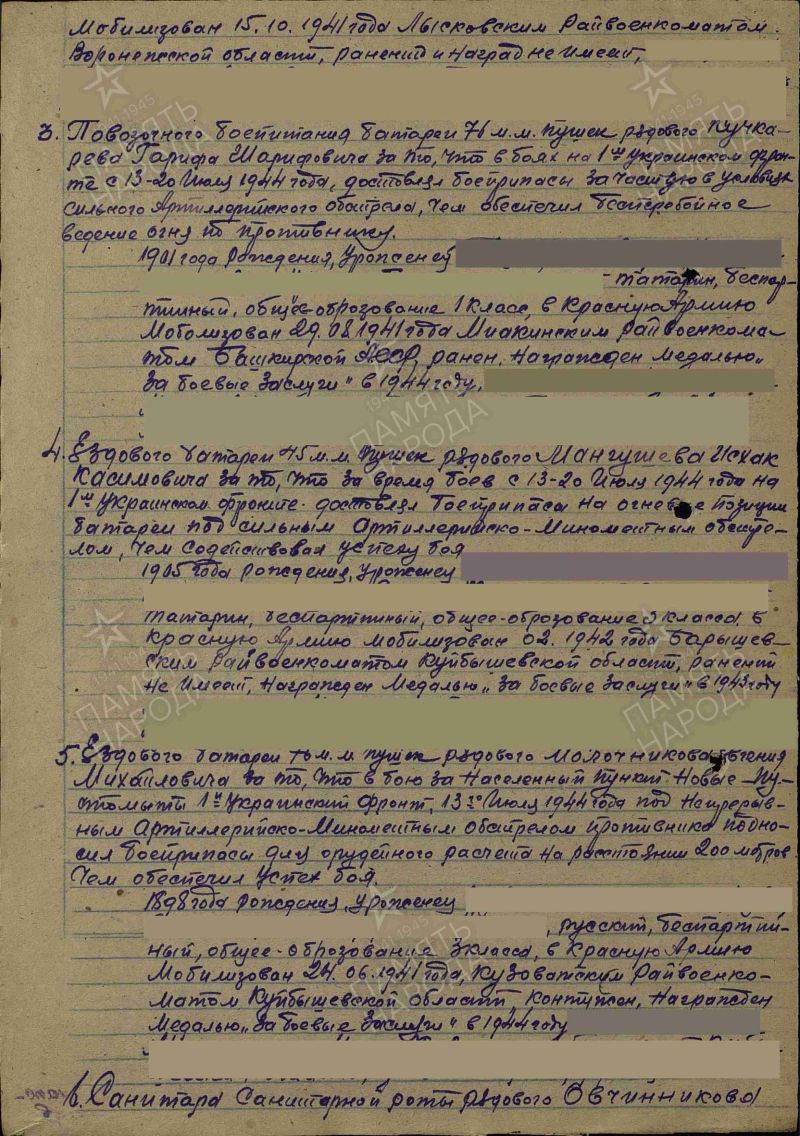 Мобилизован 15.10.1941 года Лысковским Райвоенкоматом
Воронежской области, ранений и Наград не имеет,
3. Повозочного боепитания батареи 76 м.м. пушек рядового Пучка-
рева Гарифа Шарифовича за то, что в боях на 1ом Украинском фрон-
те с 13-20 Июля 1944 года, доставлял боеприпасы зачастую в условиях
сильного Артиллерийского обстрела, чем обеспечил бесперебойное
ведение огня по противнику.
1901 года Рождения, Уроженец
татарин, беспар-
тийный, общее-образование 1 класс, в Красную Армию
Мобилизован 29.08.1941 года Миакинским Райвоенкома-
том Башкирской АССР, ранен, Награжден Медалью „
За боевые Заслуги" в 1944 году,
4. Ездового батареи 45 м.м. пушек рядового Мангушева Исхак
Касимовича за то, что за время боев с 13-20 Июля 1944 года на
1ом Украинском фронте доставлял боеприпасы на огневые позиции
батареи под сильным Артиллерийско-Миномётным обстре-
лом, чем содействовал успеху боя
1905 года рождения, Уроженец
татарин, беспартийный, общее-образование 3 класса в
Красную Армию мобилизован 02.1942 года Барышев-
ским Райвоенкоматом Куйбышевской области, ранений
Не Имеет, Награжден Медалью „За боевые Заслуги" в 1943 году
5. Ездового батареи 76 м.м пушек рядового Молочникова Евгения
Михайловича за то, что в бою за Населенный пункт Новые-Пу-
томыты 1й Украинский фронт, 13го Июля 1944 года под Непрерыв-
ным Артиллерийско-Миномётным обстрелом противника подно-
сил боеприпасы для орудейного расчета на расстоянии 200 метров
Чем обеспечил успех боя.
1898 года рождения, Уроженец
, русский, беспартий-
ный, общее-образование 3 класса, в Красную Армию
Мобилизован 24.06.1941 года, Кузоватским Райвоенко-
матом Куйбышевской области, контужен, Награжден
Медалью „За боевые Заслуги" в 1944 году
6. Санитара Санитарной роты рядового Овчинникова
ПАМЯТЬ НАРОДА